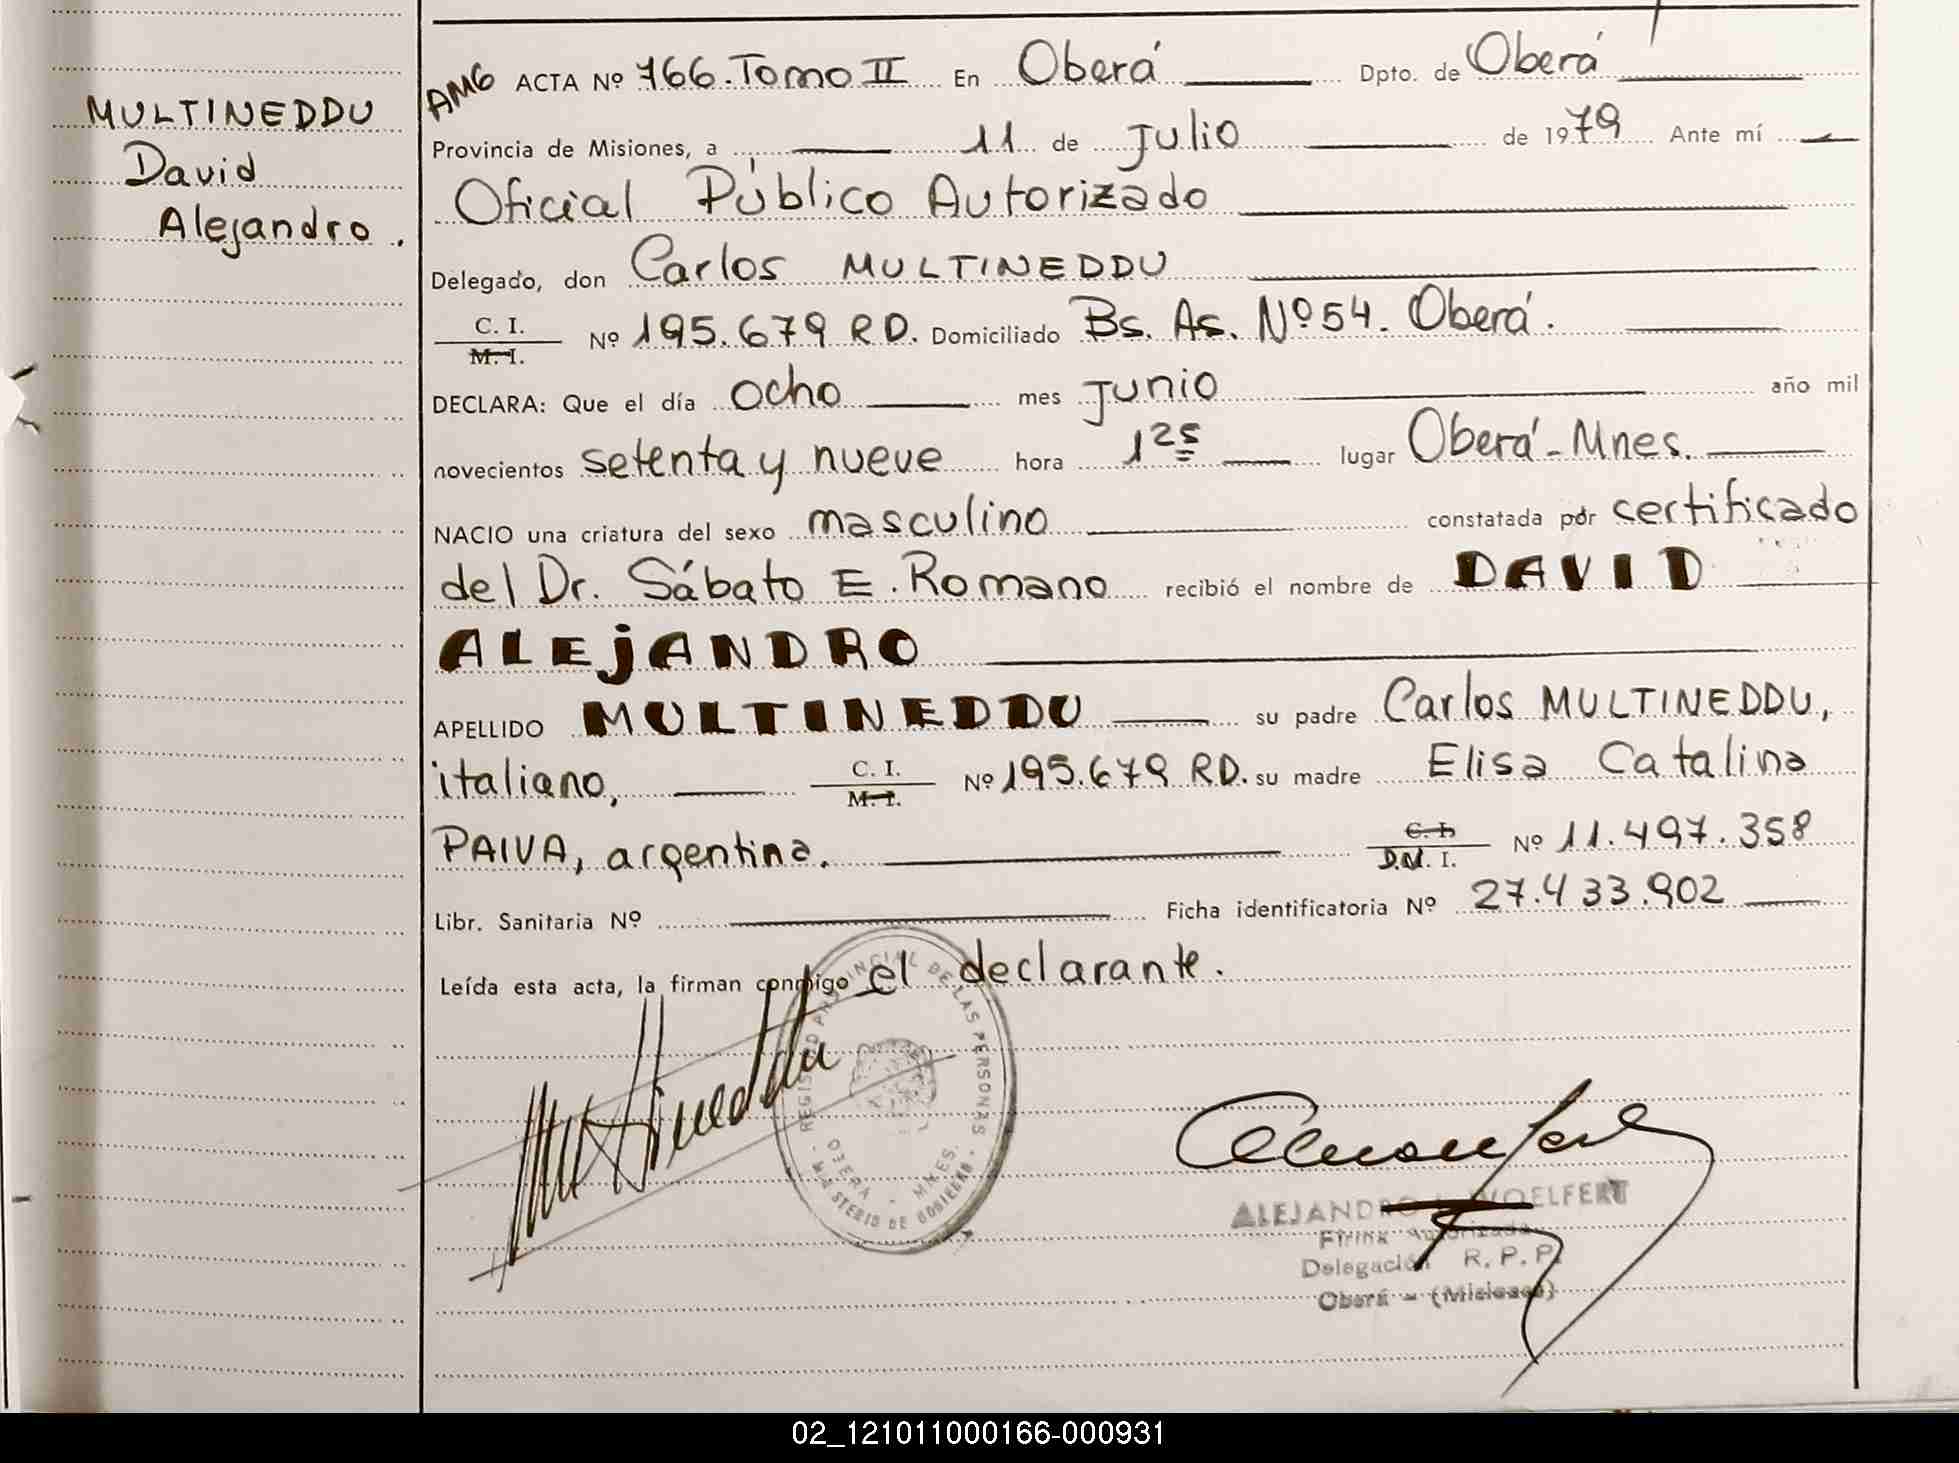 MULTINEDDU
David
Alejandro.
AMG ACTA Nº 766. Tomo II En Oberá Dpto. de Oberá
Provincia de Misiones, a 11 de Julio de 1979 Ante mí
Oficial Público Autorizado
Delegado, don Carlos MULTINEDDU
C. I.
M. I.
Nº 195.679 RD. Domiciliado Bs. As. Nº 54. Oberá.
DECLARA: Que el día ocho mes Junio año mil
novecientos setenta y nueve hora 1 25 lugar Oberá - Mnes.
NACIO una criatura del sexo masculino constatada por certificado
del Dr. Sábato E. Romano recibió el nombre de DAVID
ALEJANDRO
APELLIDO MULTINEDDU su padre Carlos MULTINEDDU,
italiano, C. I. M. I. Nº 195.679 RD. su madre Elisa Catalina
PAIVA, argentina. C. I. D.N. I. Nº 11.497.358
Libr. Sanitaria Nº Ficha identificatoria Nº 27.433.902
Leída esta acta, la firman conmigo el declarante.
REGISTRO PROVINCIAL DE LAS PERSONAS
OBERA - MNES.
MINISTERIO DE GOBIERNO
Multineddu
ALEJANDRO WOELFERT
Firma Autorizada
Delegación R. P. P.
Oberá - (Misiones)
02_121011000166-000931